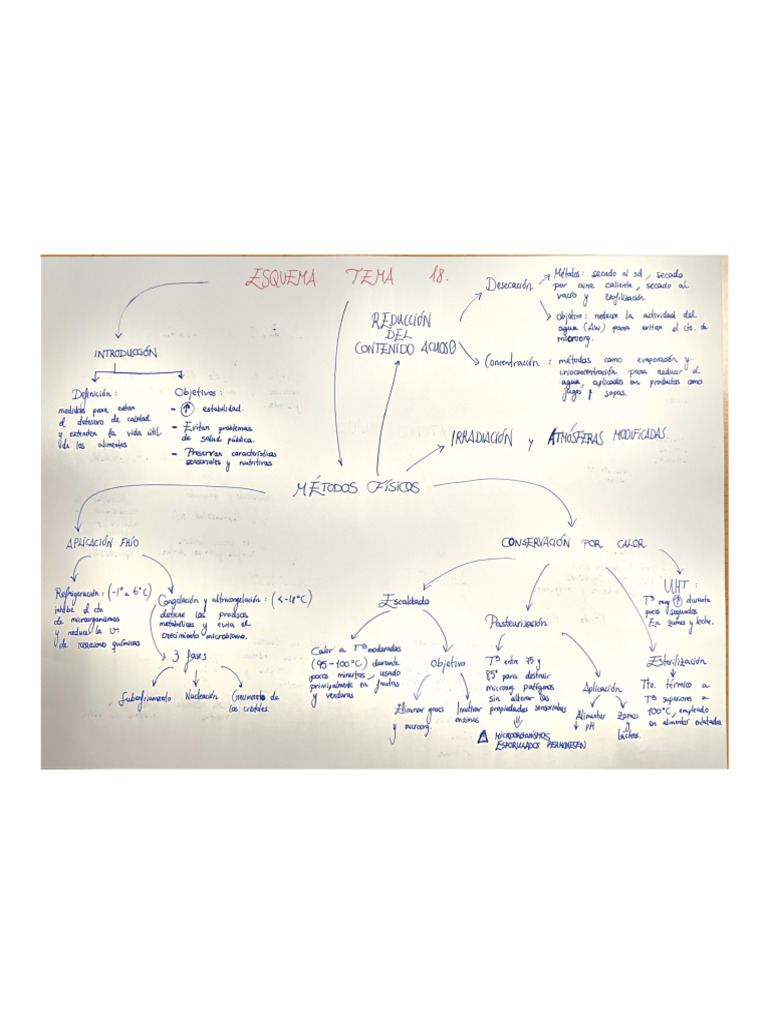 ESQUEMA TEMA 18.
INTRODUCCIÓN
Definición:
medidas para evitar
el deterioro de calidad
y extender la vida útil
de los alimentos
Objetivos:
- ↑ estabilidad.
- Evitan problemas
de salud pública.
- Preservan características
sensoriales y nutritivas
REDUCCIÓN
DEL
CONTENIDO ACUOSO
Desecación
Métodos: secado al sol, secado
por aire caliente, secado al
vacío y liofilización.
Objetivo: reducir la actividad del
agua (Aw) para evitar el cto. de
microorg.
Concentración: métodos como evaporación y
crioconcentración para reducir el
agua, aplicados en productos como
jugos y sopas.
IRRADIACIÓN y ATMÓSFERAS MODIFICADAS
MÉTODOS FÍSICOS
APLICACIÓN FRÍO
Refrigeración: (-1º a 6ºC)
inhibe el cto
de microorganismos
y reduce la v-
de reacciones químicas
Congelación y ultracongelación: (<-18ºC)
detiene los procesos
metabólicos y evita el
crecimiento microbiano.
3 fases
Subenfriamiento
Nucleación
Crecimiento de
los cristales.
CONSERVACIÓN POR CALOR
Escaldado
Calor a Tª moderadas
(95-100ºC) durante
pocos minutos, usado
principalmente en frutas
y verduras
Objetivo
Eliminar gases
y microorg.
Inactivar
enzimas
Pasteurización
Tª entre 75 y
85º para destruir
microorg. patógenos
sin alterar las
propiedades sensoriales
⇓
⚠ MICROORGANISMOS
ESPORULADOS PERMANECEN
Aplicación
Alimentos
↓ pH
Zumos
y
lácteos.
UHT:
Tª muy ↑ durante
pocos segundos.
En zumos y leche.
Esterilización
Tto. térmico a
Tª superiores a
100ºC, empleado
en alimentos enlatados